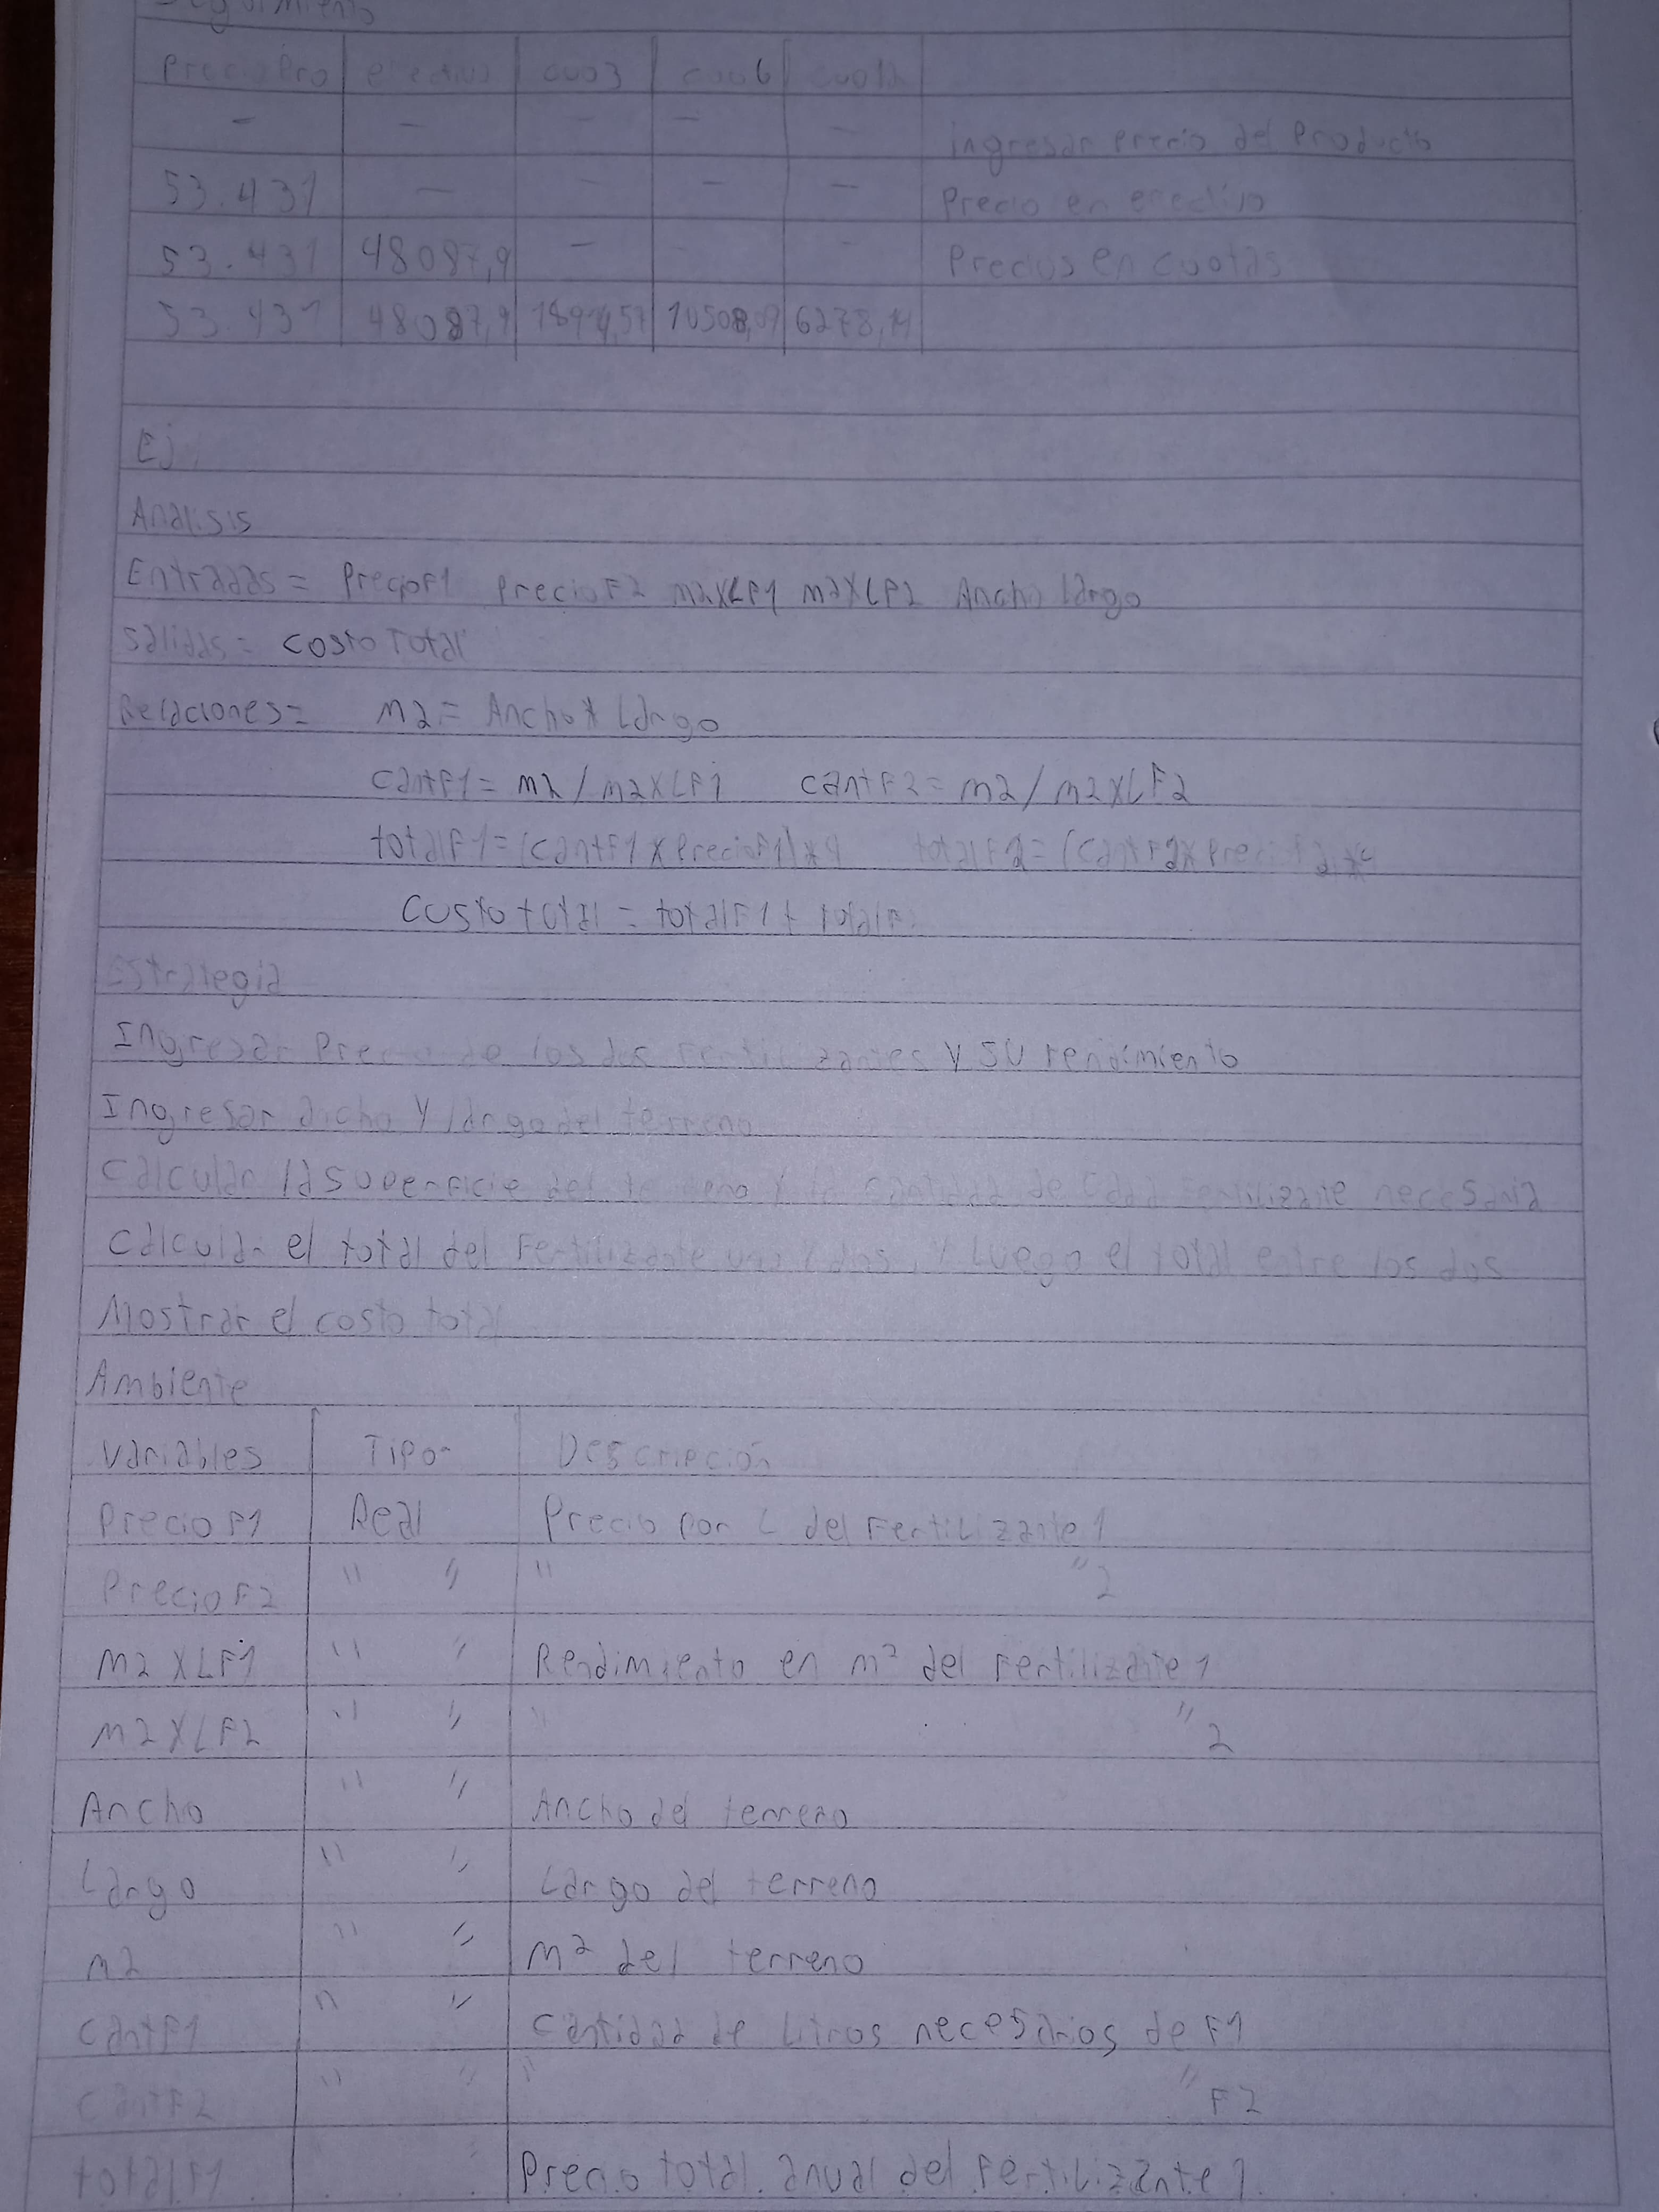 Seguimiento
PrecioPro efectivo cuo3 cuo6 cuo12
- - - - - ingresar precio del Producto
53.431 - - - - Precio en efectivo
53.431 48087,9 - - Precios en cuotas
53.431 48087,9 6278,14
Ej
Analisis
Entradas = PrecioF1 PrecioF2 m2xLF1 m2xLF2 Ancho Largo
Salidas = costo Total
Relaciones = m2 = Ancho * Largo
cantF1 = m2 / m2xLF1 cantF2 = m2 / m2xLF2
totalF1 = (cantF1 x PrecioF1) * 4 totalF2 = (cantF2 x PrecioF2) * 4
Costo total = totalF1 + totalF
Estrategia
Ingresar Precio de los dos Fertilizantes y su rendimiento
Ingresar ancho y largo del terreno
Calcular la superficie del terreno y la cantidad de cada Fertilizante necesaria
Calcular el total del Fertilizante uno y dos, y luego el total entre los dos
Mostrar el costo total
Ambiente
Variables Tipo Descripción
Precio F1 Real Precio por L del Fertilizante 1
Precio F2 " " " " 2
M2 X LF1 " " Rendimiento en m² del Fertilizante 1
M2 X LF2 " " " " 2
Ancho " " Ancho del terreno
Largo " " Largo del terreno
m2 " " m² del terreno
cantF1 " " cantidad de Litros necesarios de F1
cantF2 " " " " F2
totalF1 Precio total anual del Fertilizante 1